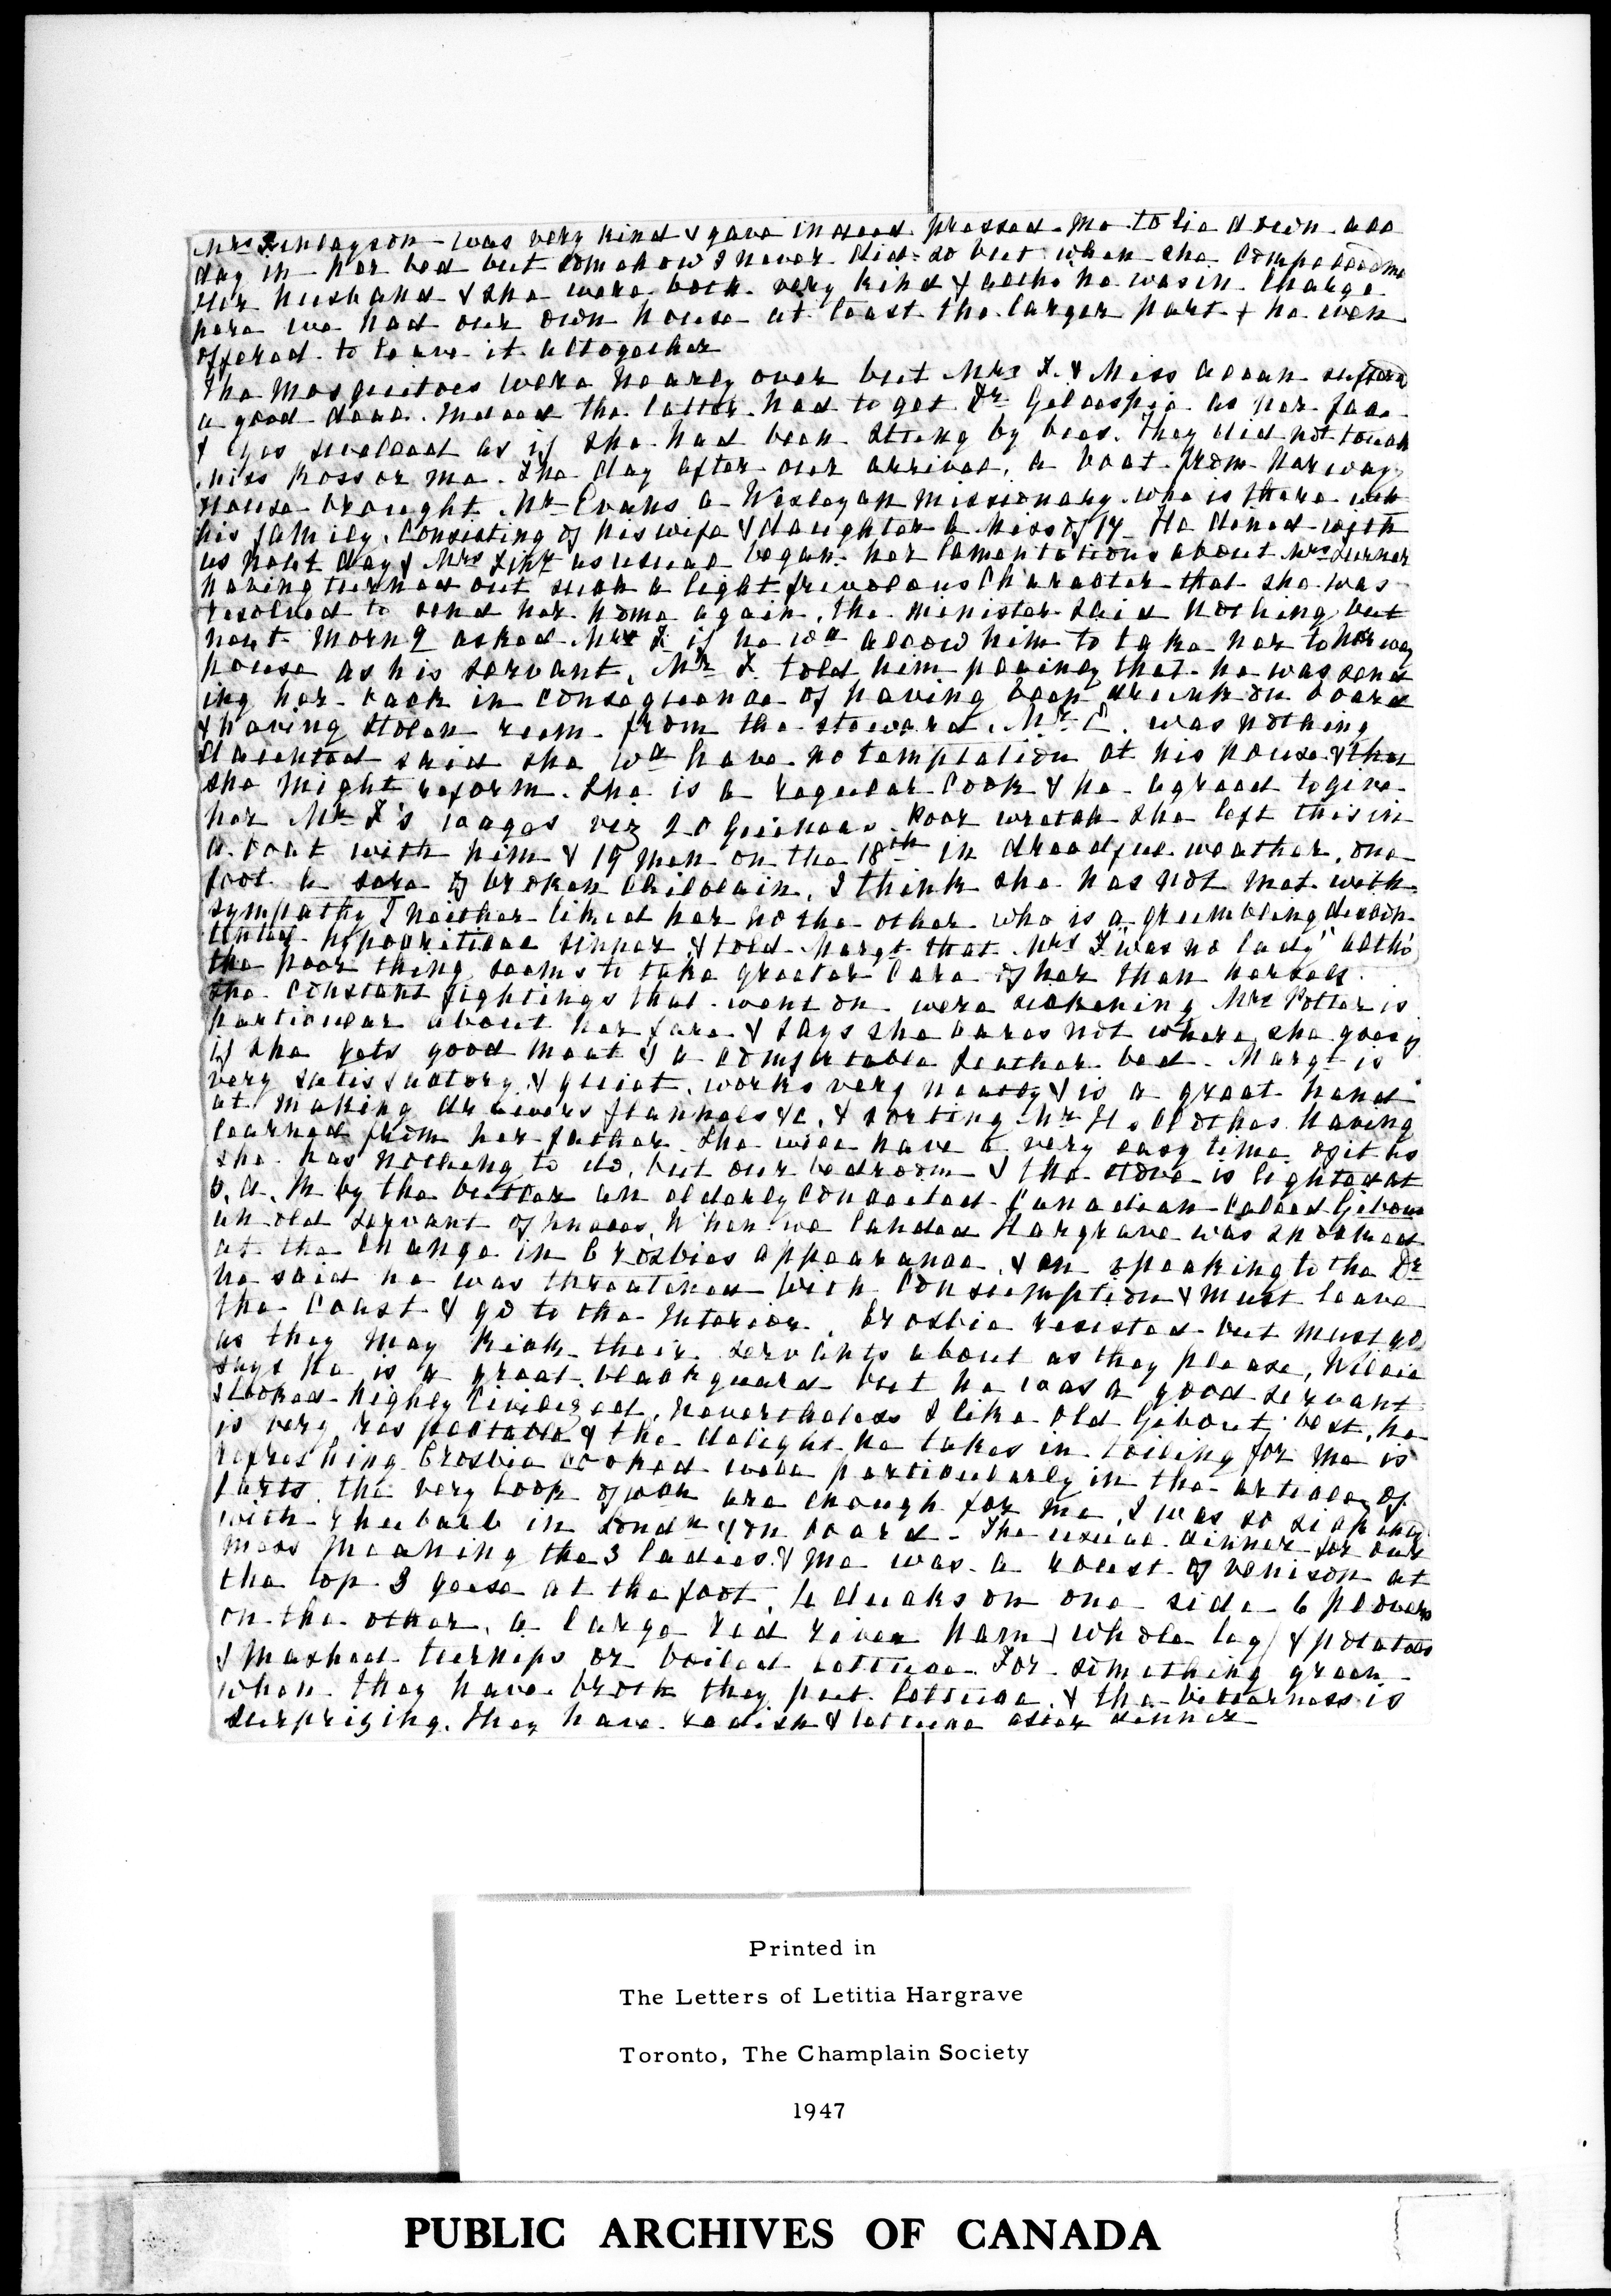 Mrs Finlayson was very kind & gave indeed pressed me to lie down all
day in her bed but somehow I never did so but when she compelled me
Her husband & she were both very kind & altho he was in charge
here we had our own house at least the larger part & he even
offered to leave it altogether
The mosquitoes were nearly over but Mrs F. & Miss Allan suffered
a good deal. Indeed the latter had to get Dr Gillespie as her face
& eyes swelled as if she had been stung by bees. They did not touch
Miss Ross or me. The day after our arrival, a boat from Norway
House brought Mr Evans a Wesleyan missionary who is there with
his family, consisting of his wife & daughter a Miss of 17. He dined with
us next day & Mrs Finn as usual began her lamentations about Mrs Turner
having turned out such a light frivolous character that she was
resolved to send her home again. The minister said nothing but
next morng asked Mr F if he wd allow him to take her to Norway
House as his servant, Mr F. told him plainly that he was send
ing her back in consequence of having been drunk on board
& having stolen rum from the steward. Mr E. was nothing
daunted said she wd have no temptation at his house & that
she might reform. She is a regular cook & he agreed to give
her Mr F's wages viz 20 Guineas. Poor wretch she left this in
a boat with him & 19 men on the 18th in dreadful weather, one
foot a sore of broken chilblain. I think she has not met with
sympathy I neither liked her no the other who is a grumbling discon
tented hypocritical sinner & told Margt that Mrs F "was no lady" altho'
the poor thing seems to take greater care of her than herself.
The constant fightings that went on were sickening Mrs Potter is
particular about her fare & says she cares not where she goes
if she gets good meat & a comfortable feather bed. Margt is
very satisfactory & quiet, works very neatly & is a great hand
at making drawers flannels &c. & sorting Mr H.s clothes having
learned from her father. She will have a very easy time of it as
she has nothing to do, but our bedroom & the stove is lighted at
5. A. M by the butler an elderly conceited Canadian called Gibout
an old servant of Uncles, When we landed Hargrave was shocked
at the change in Crosbies appearance, & on speaking to the Dr
he said he was threatened with consumption & must leave
the Coast & go to the Interior. Crosbie resisted but must go
as they may kick their servants about as they please, Willie
says he is a great blackguard but he was a good servant
& looked highly civilized, nevertheless I like old Gibout best, he
is very respectable & the delight he takes in toiling for me is
refreshing Crosbie cooked well particularly in the article of
tarts, the very look of wch are enough for me, I was so sickened
with rhubarb in Londn & on board. The usual dinner for our
mess meaning the 3 ladies & me was a roast of venison at
the top 3 geese at the foot, 4 ducks on one side 6 plovers
on the other, a large Red River ham (whole leg) & potatoes
& mashed turnips or boiled lettuce. For something green
when they have broth they put lettuce & the bitterness is
surprizing. They have radish & lettuce after dinner
Printed in
The Letters of Letitia Hargrave
Toronto, The Champlain Society
1947
PUBLIC ARCHIVES OF CANADA